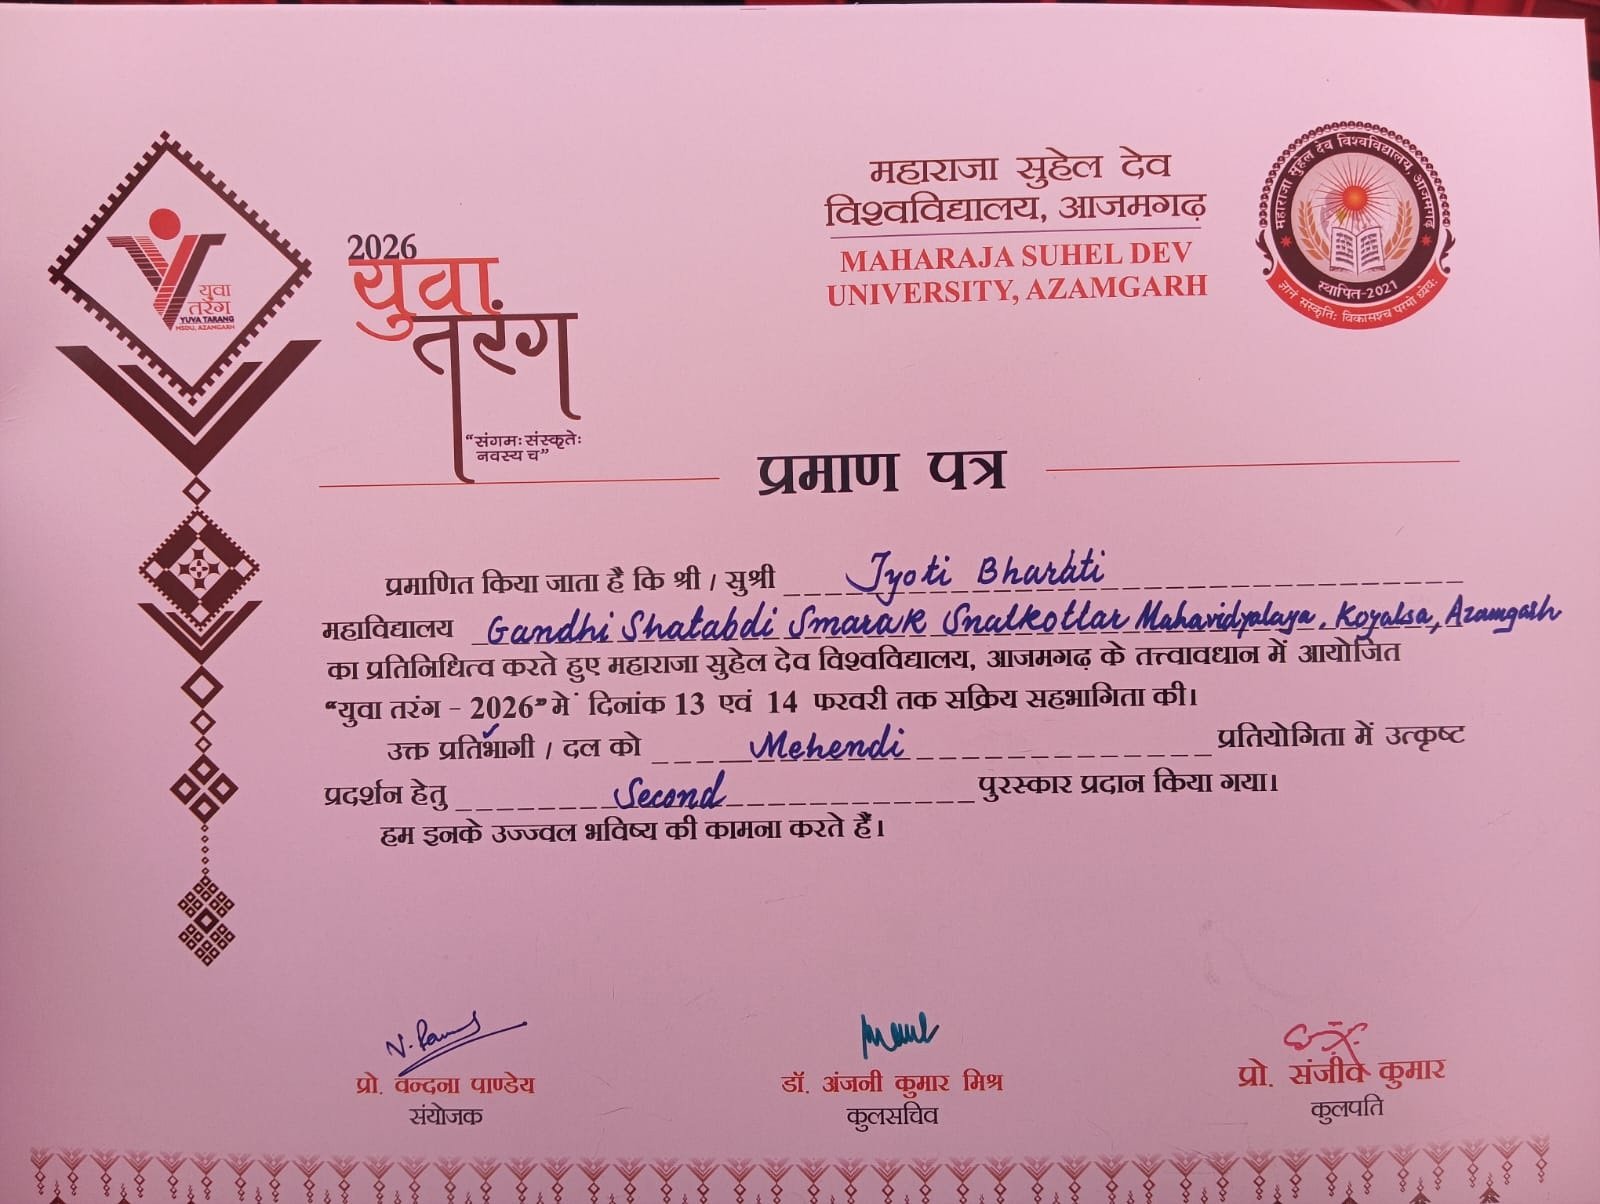 युवा
तरंग
YUVA TARANG
MSDU, AZAMGARH
2026
युवा
तरंग
“संगमः संस्कृतेः
नवस्य च”
महाराजा सुहेल देव
विश्वविद्यालय, आजमगढ़
MAHARAJA SUHEL DEV
UNIVERSITY, AZAMGARH
महाराजा सुहेल देव विश्वविद्यालय, आजमगढ़
स्थापित-2021
ज्ञानं संस्कृतिः विकासश्च परमो ध्येयः
प्रमाण पत्र
प्रमाणित किया जाता है कि श्री / सुश्री Jyoti Bharati
महाविद्यालय Gandhi Shatabdi Smarak Snatkottar Mahavidyalaya, Koyalsa, Azamgarh
का प्रतिनिधित्व करते हुए महाराजा सुहेल देव विश्वविद्यालय, आजमगढ़ के तत्त्वावधान में आयोजित
“युवा तरंग - 2026” में दिनांक 13 एवं 14 फरवरी तक सक्रिय सहभागिता की।
उक्त प्रतिभागी / दल को Mehendi प्रतियोगिता में उत्कृष्ट
प्रदर्शन हेतु Second पुरस्कार प्रदान किया गया।
हम इनके उज्ज्वल भविष्य की कामना करते हैं।
प्रो. वन्दना पाण्डेय
संयोजक
डॉ. अंजनी कुमार मिश्र
कुलसचिव
प्रो. संजीव कुमार
कुलपति